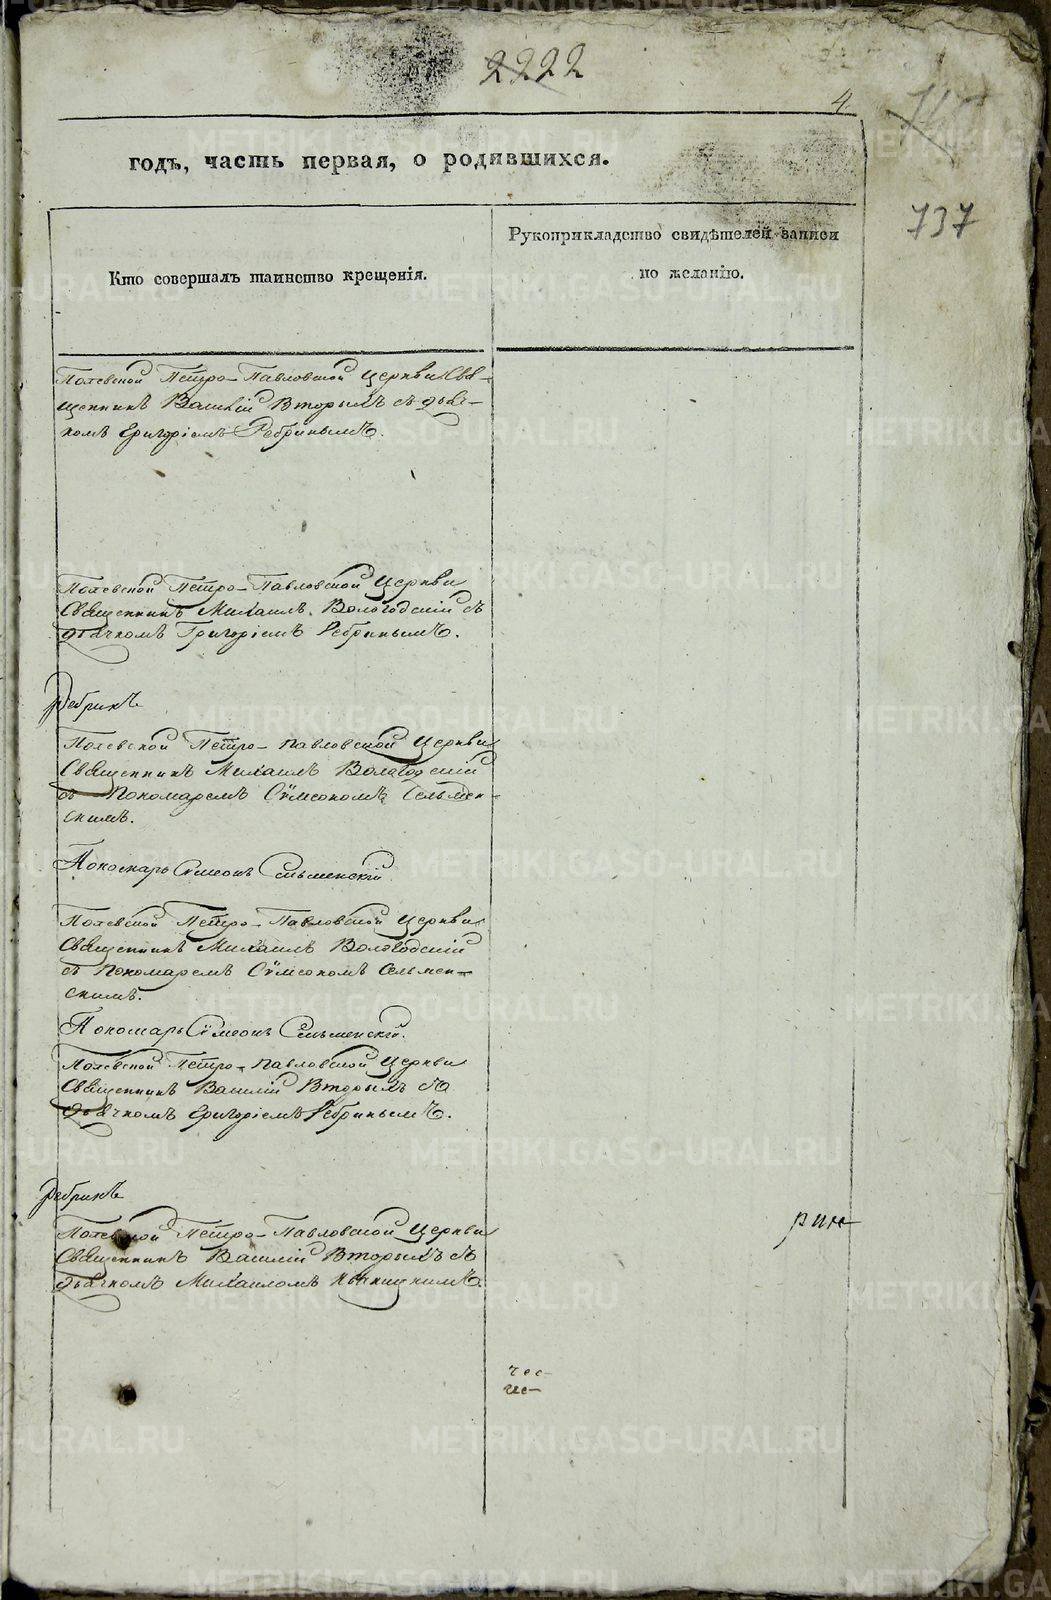 2222
4
737
годъ, часть первая, о родившихся.
Кто совершалъ таинство крещенія.
Рукоприкладство свидѣтелей записи
по желанію.
Полевской Петро-Павловской Церкви Свя-
щенникъ Василій Вторыхъ съ дья-
комъ Григоріемъ Ребринымъ.
Полевской Петро-Павловской Церкви
Священникъ Михаилъ Вологодскій съ
дьячкомъ Григоріемъ Ребринымъ.
Ребринъ
Полевской Петро-Павловской Церкви
Священникъ Михаилъ Вологодскій
съ Пономаремъ Сѵмеономъ Сельмен-
скимъ.
Пономарь Сѵмеонъ Сельменскій
Полевской Петро-Павловской Церкви
Священникъ Михаилъ Вологодскій
съ Пономаремъ Сѵмеономъ Сельмен-
скимъ.
Пономарь Сѵмеонъ Сельменскій.
Полевской Петро-Павловской Церкви
Священникъ Василій Вторыхъ съ
дьячкомъ Григоріемъ Ребринымъ.
Ребринъ
Полевской Петро-Павловской Церкви
Священникъ Василій Вторыхъ съ
дьячкомъ Михаиломъ
METRIKI.GASO-URAL.RU